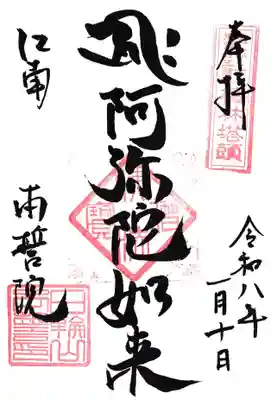 奉拝
令和八年
一月十日
阿弥陀如来
江南
南誓院